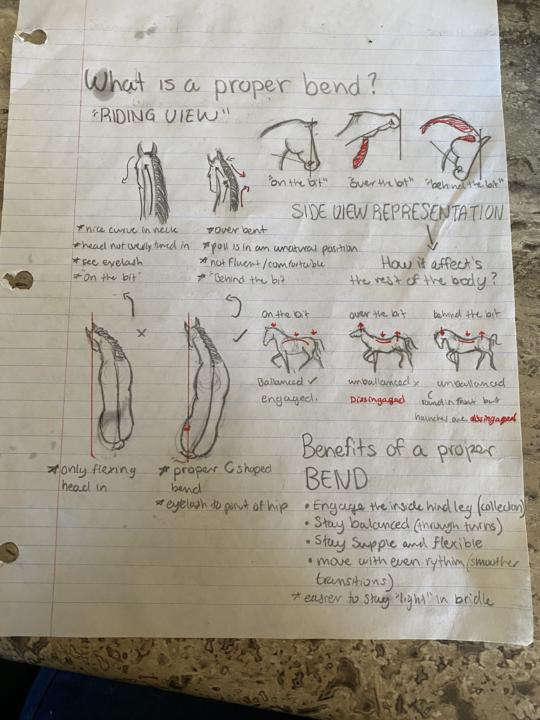 What is a proper bend?
"RIDING VIEW"
"on the bit"
"over the bit"
"behind the bit"
SIDE VIEW REPRESENTATION
* nice curve in neck
* head not overly turned in
* see eyelash
* "on the bit"
* over bent
* poll is in an unatural position
* not fluent/comfortable
* "Behind the bit
How it affect's
the rest of the body?
on the bit
over the bit
behind the bit
Ballanced ✓
engaged.
unballanced ×
Dissingaged
unballanced
round in front but
haunches are dissingaged
* only flexing
head in
* proper C shaped
bend
* eyelash to point of hip
Benefits of a proper
BEND
• Engage the inside hind leg (collection)
• Stay balanced (through turns)
• Stay supple and flexible
• move with even rythim (smoother
transitions)
* easier to stay "light" in bridle